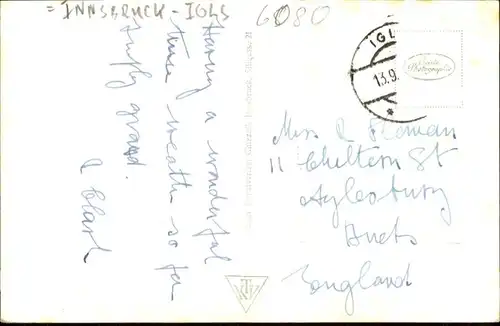 = INNSBRUCK - IGLS
6080
Having a wonderful
time weather so far
simply grand.
A Clark
IGL
13.9.
Echte
Photographie
Miss R Roman
11 Chiltern St
Aylesbury
Bucks
England